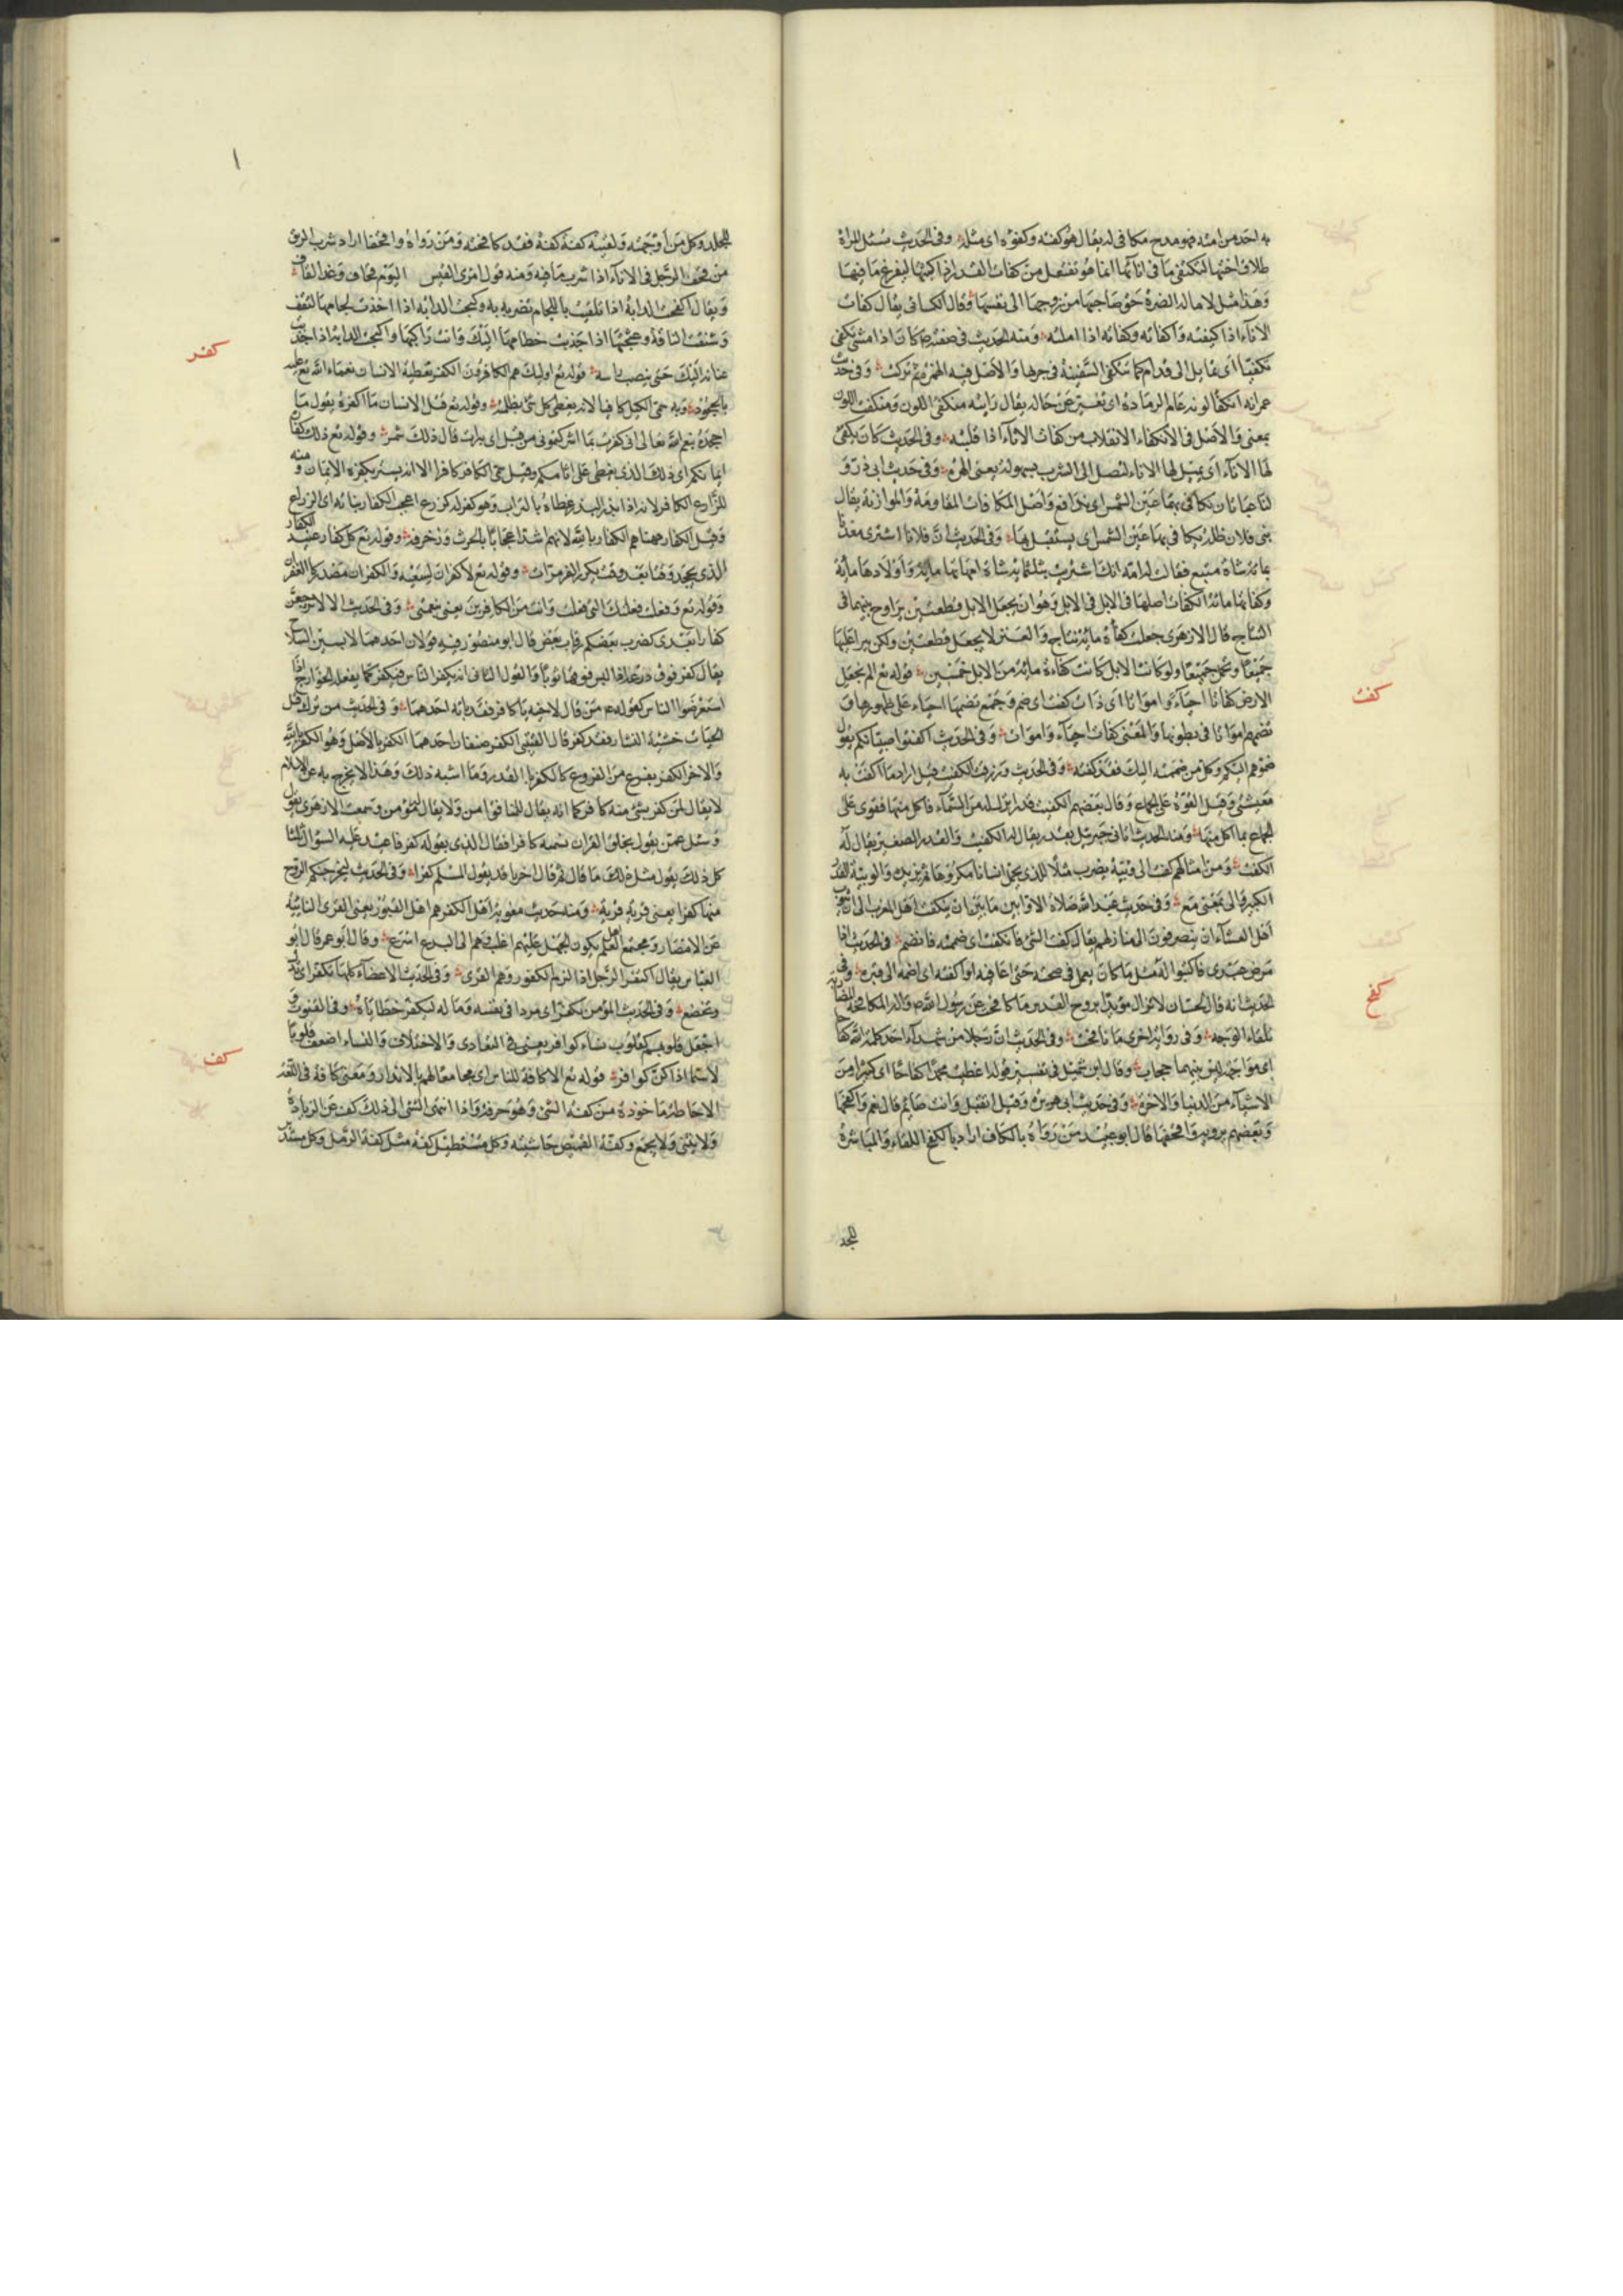 به احد من امته فهو مدح مكافى له يقال هو كفئه وكفوه اى مثله وفى الحديث لا تسئل المراة
طلاق اختها لتكتفئ ما فى انائها انما هو تفتعل من كفات القدر اذا كببتها ليفرغ ما فيها
وهذا مثل لامالة الضرة حق صاحبتها من زوجها الى نفسها وقال الكسائى يقال كفات
الاناء اذا كببته واكفاته وكفاته اذا املته ومنه الحديث فى صفته كان اذا مشى تكفى
تكفيا اى تمايل الى قدام كما تتكفى السفينة فى جريها والاصل فيه الهمز ثم تركت وفى حديث
عمر انه انكفا لونه عام الرمادة اى تغير عن حاله يقال رايته منكفئ اللون ومنكفت اللون
بمعنى والاصل فى الانكفاء الانقلاب من كفات الاناء اذا قلبته وفى الحديث كان يكفئ
لها الاناء اى يميل لها الاناء لتصل الى الشرب بسهولة يعنى الهرة وفى حديث ابى ذر و
لنا عباءتان نكافى بهما عين الشمس اى ندافع واصل المكافات المقاومة والموازنة يقال
بنى فلان ظلة يكافى بها عين الشمس اى يستقبل بها وفى الحديث ان فلانا اشترى معدنا
بمائة شاة متبع فقالت له امه انك اشتريت بثلثمائة شاة امهاتها مائة واولادها مائة
وكفاتها مائة الكفات اصلها فى الابل وهو ان يجعل الابل قطعتين يراوح بينهما فى
النتاج قال الازهرى جعلت كفأة مائة نتاج والعنز لا يجعل قطعتين ولكن ينزا عليها
جميعا وتحمل جميعا ولو كانت الابل كانت كفاءة مائة من الابل خمسين قوله تع الم نجعل
كفت
الارض كفاتا احياء وامواتا اى ذات كفت اى ضم وجمع تضمها احياء على ظهورها و
تضمهم امواتا فى بطونها والمعنى كفات احياء واموات وفى الحديث اكفتوا صبيانكم يقول
ضموهم اليكم وكل من ضممته اليك فقد كفته وفى الحديث ورزقت الكفيت قيل اراد ما اكفت به
معيشتى وقيل القوة على الجماع وقال بعضهم الكفيت قدر انزلت له من السماء فاكل منها فقوى على
الجماع بما اكل منها ومنه الحديث اتانى جبرئيل بقدر يقال لها الكفيت والقدر الصغير يقال له
الكفت ومن امثالهم كفت الى وئية يضرب مثلا للذى يحمل انسانا مكروها ثم يزيده والوئية القدر
الكبير والى بمعنى مع وفى حديث عبد الله صلاة الاوابين ما بين ان ينكفت اهل المغرب الى ان يثوب
اهل العشاء اى ينصرفون الى منازلهم يقال كفت الشئ فانكفت اى ضممته فانضم فى الحديث اذا
مرض عبدى فاكتبوا له مثل ما كان يعمل فى صحته حتى اعافيه او اكفته اى اضمه الى قبره وفى
كفح
الحديث انه قال لحسان لا تزال مؤيدا بروح القدس ما كافحت عن رسول الله والمكافحة المضاربة
تلقاء الوجه وفى رواية اخرى ما نافحت وفى الحديث ان رجلا من شهداء احد كلمه الله كفاحا
اى مواجهة ليس بينهما حجاب وقال ابن شميل فى تفسير قوله اعطيت محمدا كفاحا اى كثيرا من
الاشياء من الدنيا والاخرة وفى حديث ابى هريرة وقيل اتقبل وانت صائم قال نعم واكفحها
وبعضهم يرويه واقحفها قال ابو عبيد من رواه بالكاف اراد بالكفح اللقاء والمباشرة
للجلد
للجلد وكل من اوجهته ولقيته كفة كفة فقد كافحته ومن رواه واقحفها اراد شرب الريق
من قحف الرجل فى الاناء اذا شرب ما فيه ومنه قول امرئ القيس اليوم قحاف وغدا نقاف
ويقال اكفحت الدابة اذا تلقيت باللجام تضربه به وكبحت الدابة اذا اخذت لجامها لتقف
وشنقت الناقة وعجتها اذا جذبت خطامها اليك وانت راكبها واكبحت الدابة اذا جذبت
كفر
عنانه اليك حتى ينصب راسه قوله تع اوليك هم الكافرون الكفر تغطية الانسان نعماء الله تع عليه
بالجحود وبه سمى الليل كافرا لانه يغطى كل شئ بظلمته وقوله تع قتل الانسان ما اكفره يقول ما
اجحده بنعم الله تعالى انى كفرت بما اشركتمونى من قبل اى برات قال ذلك شمر وقوله تع ذلك كفارة
ايمانكم اى ذلك الذى يغطى على اثامكم وقيل سمى الكافر كافرا لا انه يستر بكفره الايمان ومنه
للزارع الكافر لانه اذا بذر البذر غطاه بالتراب وهو كقوله كزرع اعجب الكفار نباته اى الزراع
وقيل الكفار ههنا هم الكفار بالله لانهم اشد اعجابا بالحرث وزخرفه وقوله تع كل كفار عنيد الكفار
الذى يجحد وقتا بعد وقت يكرر الكفر مرات وقوله تع لا كفران لسعيه والكفران مصدر كالغفران
وقوله تع وفعلت فعلتك التى فعلت وانت من الكافرين يعنى بنعمتى وفى الحديث الا لا ترجعن
كفارا بعدى يضرب بعضكم رقاب بعض قال ابو منصور فيه قولان احدهما لابسين السلاح
يقال كفر فوق درعه اذا لبس فوقها ثوبا والقول الثانى انه يكفر الناس فيكفر كما يفعله الخوارج اذا
استعرضوا الناس كقوله عم من قال لاخيه يا كافر فقد باء به احدهما وفى الحديث من ترك قتل
الحيات خشية النار فقد كفر قال القتيبى الكفر صنفان احدهما الكفر بالاصل وهو الكفر بالله
والاخر الكفر بفرع من الفروع كالكفر بالقدر وما اشبه ذلك وهذا لا يخرج به عن الاسلام
لا يقال لمن كفر بشئ منه كافر كما انه يقال للمنافق امن ولا يقال مؤمن وسمعت الازهرى يقول
وسئل عمن يقول بخلق القران نسمه كافرا فقال الذى يقوله كفر فاعيد عليه السؤال ثلثا
كل ذلك يقول مثل ذلك ما قال ثم قال اخرها قد يقول المسلم كفرا وفى الحديث ليخرجنكم الروم
منها كفرا يعنى قرية قرية ومنه حديث معوية اهل الكفور هم اهل القبور يعنى القرى النائية
عن الامصار ومجتمع اهل العلم يكون الجهل عليهم اغلب وهم الى البدع اسرع وقال ابو عمر قال ابو
العباس يقال اكتفر الرجل اذا لزم الكفور وهم القرى وفى الحديث الاعضاء كلها تكفر اى تذل
وتخضع وفى الحديث المؤمن مكفر اى مرزا فى نفسه وماله ليكفر خطاياه وفى القنوت و
اجعل قلوبهم كقلوب نساء كوافر يعنى فى التعادى والاختلاف والنساء اضعف قلوبا
كف
لا سيما اذا كن كوافر قوله تع الا كافة للناس اى جامعا لهم بالانذار ومعنى كافة فى اللغة
الاحاطة ماخوذة من كفة الشئ وهو حرفه واذا انتهى الشئ الى ذلك كف عن الزيادة
ولا يثنى ولا يجمع وكفة القميص حاشيته وكل مستطيل كفة مثل كفة الرمل وكل مستدير